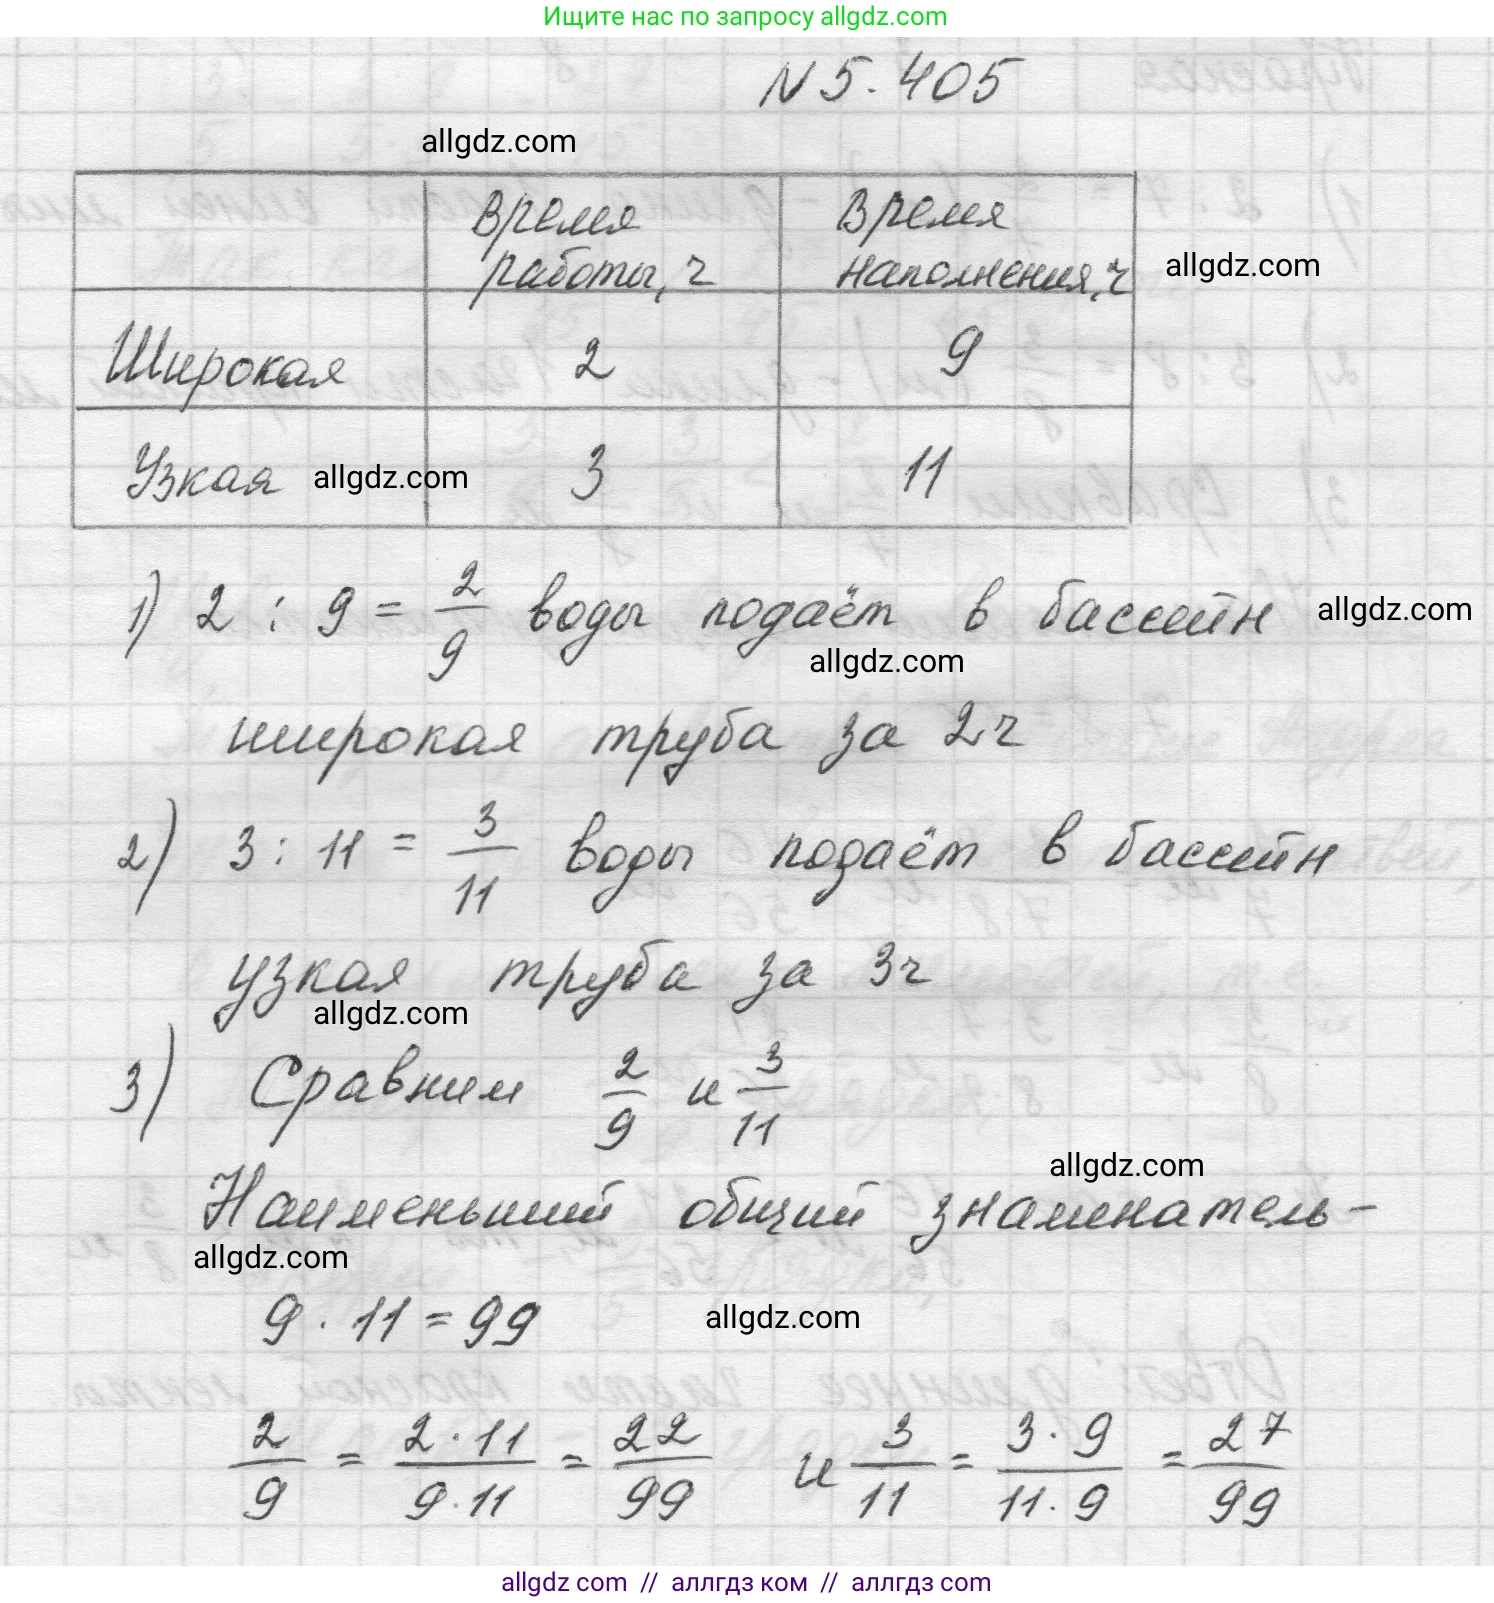 Ищите нас по запросу allgdz.com
N 5.405
allgdz.com
Время работы, ч
Время наполнения, ч
allgdz.com
Широкая 2 9
Узкая allgdz.com 3 11
1) 2 : 9 = 2/9 воды подаёт в бассейн allgdz.com
allgdz.com
широкая труба за 2ч
2) 3 : 11 = 3/11 воды подаёт в бассейн
узкая труба за 3ч
allgdz.com
3) Сравним 2/9 и 3/11
allgdz.com
Наименьший общий знаменатель-
allgdz.com
9 · 11 = 99 allgdz.com
2/9 = 2·11/9·11 = 22/99 и 3/11 = 3·9/11·9 = 27/99
allgdz com // аллгдз ком // аллгтз com